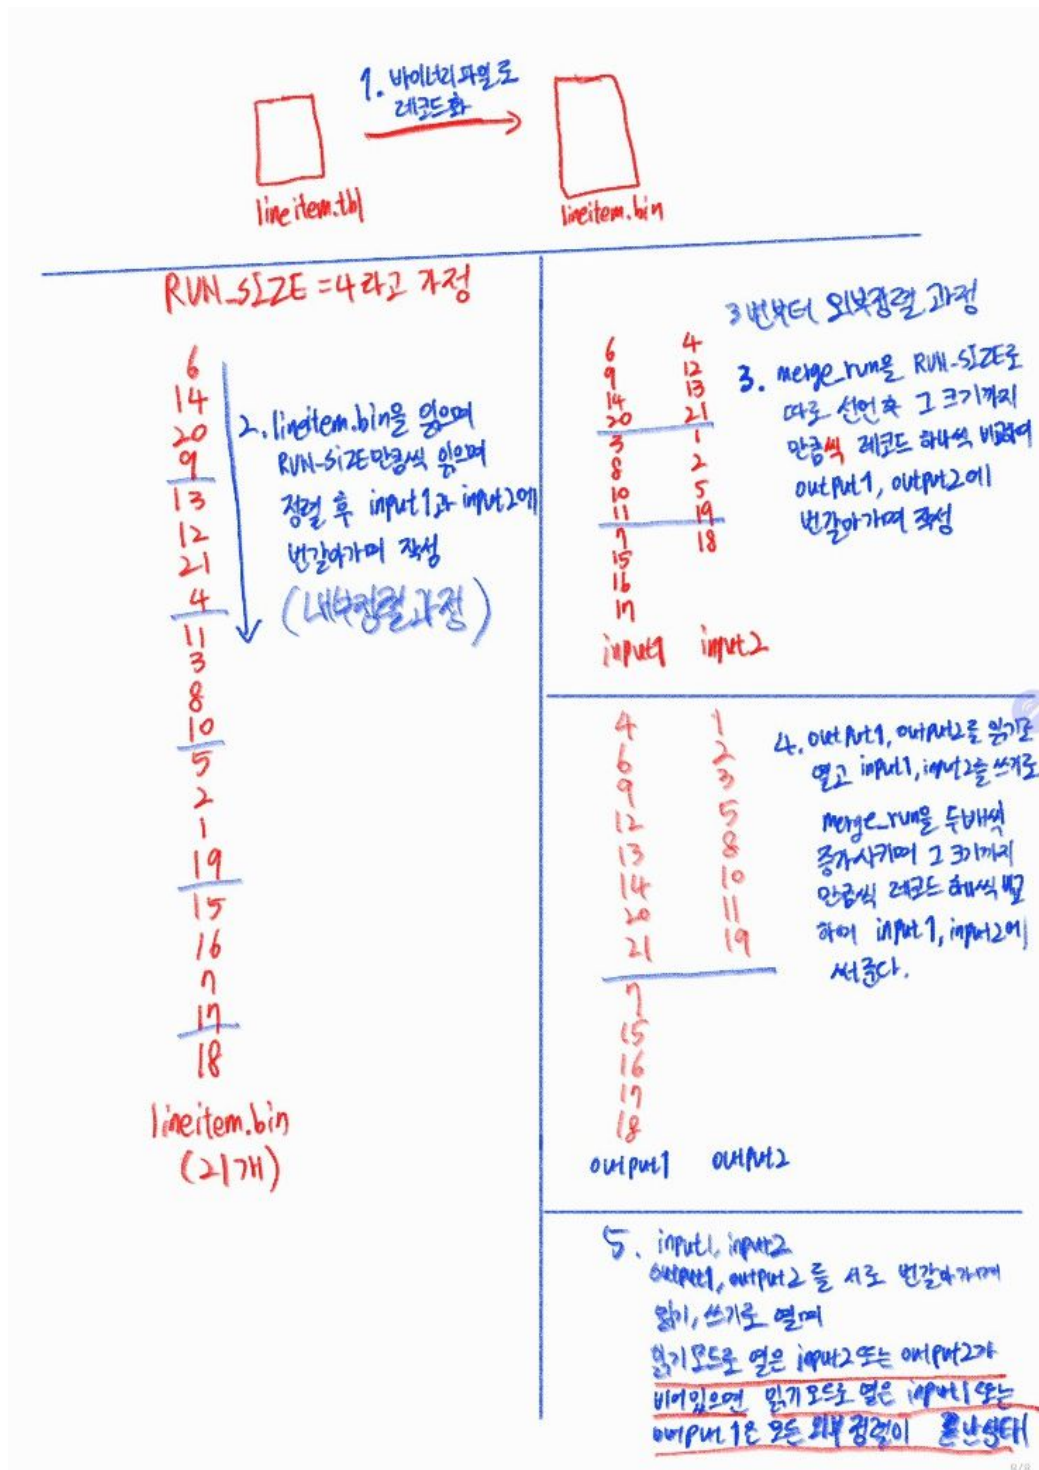 1. 바이너리파일로
레코드화
lineitem.tbl
lineitem.bin
RUN_SIZE = 4라고 가정
6
14
20
9
13
12
21
4
11
3
8
10
5
2
1
19
15
16
7
17
18
lineitem.bin
(21개)
2. lineitem.bin을 읽으며
RUN-SIZE만큼씩 읽으며
정렬 후 input1과 input2에
번갈아가며 작성
(내부정렬과정)
3번부터 외부정렬 과정
6 4
9 12
14 13
20 21
3 1
8 2
10 5
11 19
7 18
15
16
17
input1 input2
3. merge_run을 RUN-SIZE로
따로 선언 후 그 크기까지
만큼씩 레코드 하나씩 비교하여
output1, output2에
번갈아가며 작성
4 1
6 2
9 3
12 5
13 8
14 10
20 11
21 19
7
15
16
17
18
output1 output2
4. output1, output2를 읽기로
열고 input1, input2를 쓰기로
merge_run을 두배씩
증가시키며 그 크기까지
만큼씩 레코드 하나씩 비교
하여 input1, input2에
써준다.
5. input1, input2
output1, output2 를 서로 번갈아가며
읽기, 쓰기로 열며
읽기모드로 열은 input2 또는 output2가
비어있으면 읽기모드로 열은 input1 또는
output1은 모든 외부정렬이 끝난상태